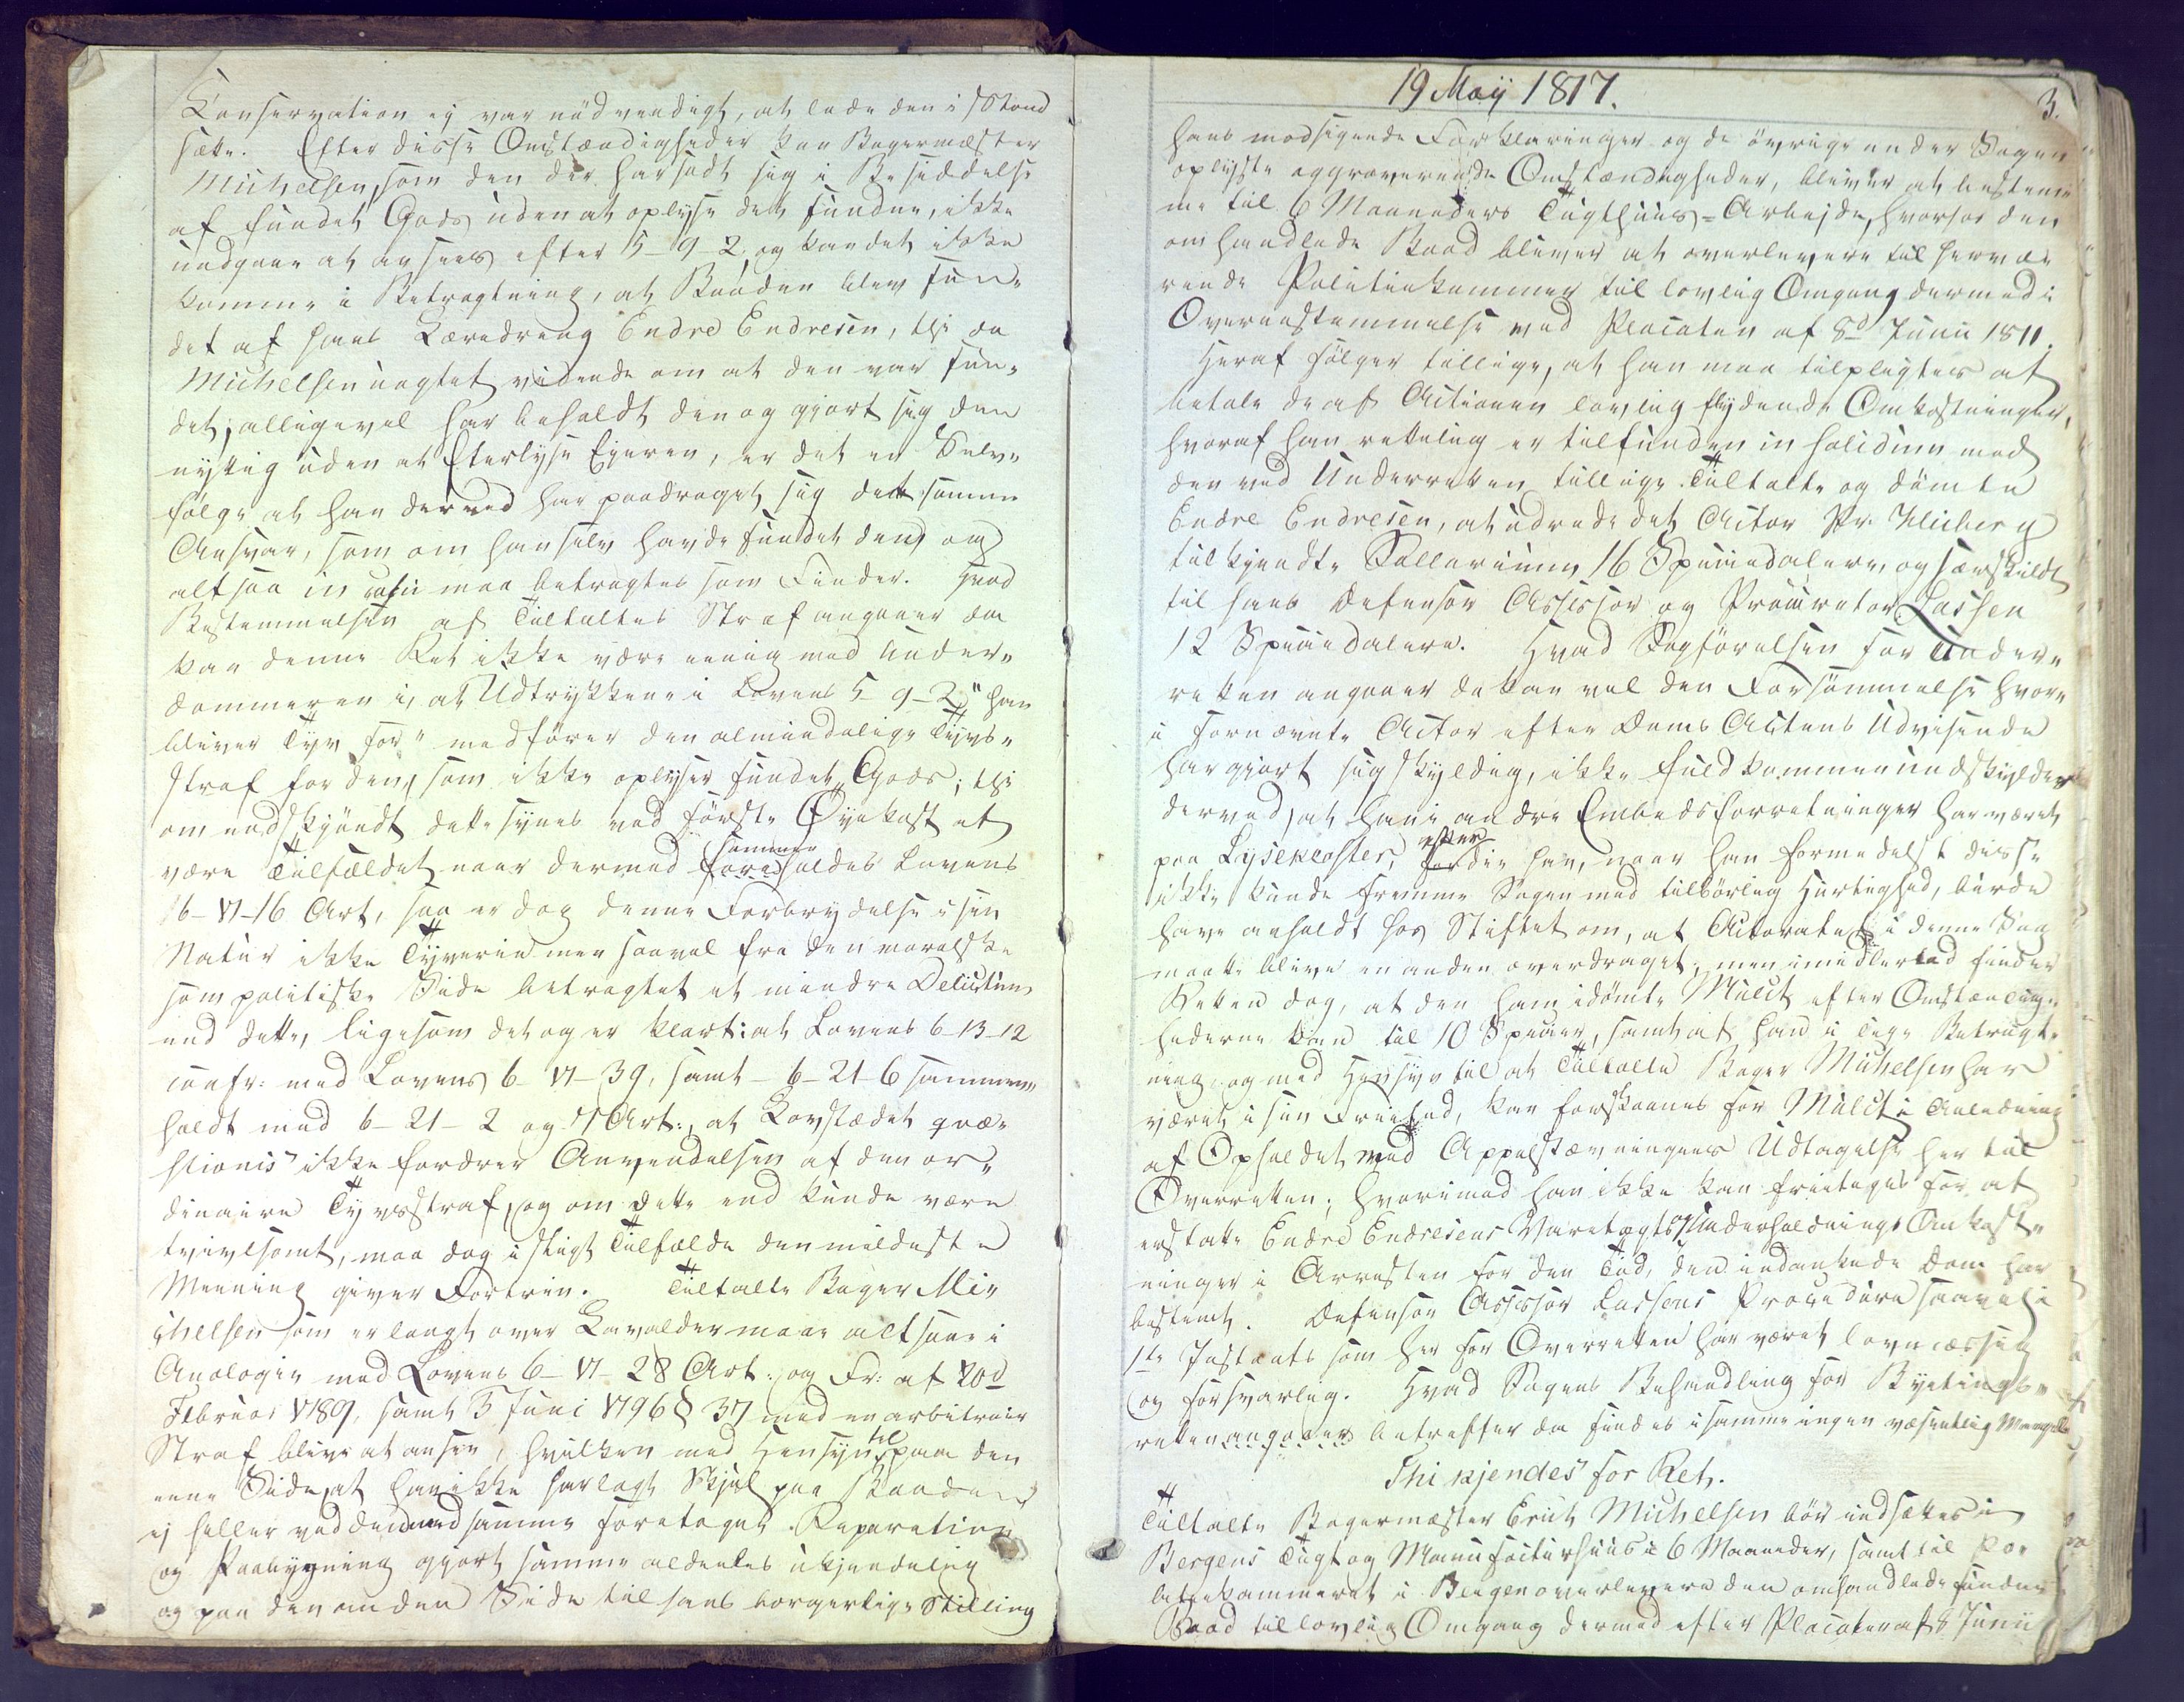 Conservation ej var nödvendigt, at lade den i Stand
sætte. Efter disse Omstændigheder kan Bagermester
Michelsen, som den der har sadt sig i Besiddelse
af fundet Gods uden at oplyse det fundne, ikke
undgaae at ansees efter 5-9-2, og kan det ikke
komme i Betragtning, at Baaden blev fun-
det af hans Læredreng Endre Endresen, thi da
Michelsen uagtet vidende om at den var fun-
det, alligevel har beholdt den og gjort sig den
nyttig uden at Efterlyse Ejeren, er det en Selv-
følge at han derved har paadraget sig det samme
Ansvar, som om han selv havde fundet den, og
altsaa in casu maa betragtes som Finder. Hvad
Bestemmelsen af Tiltaltes Straf angaaer da
kan denne Ret ikke være eenig med Under-
dommeren i, at Udtrykkene i Lovens 5-9-2, "han
bliver Tyv for" medfører den almindelige Tyvs-
straf for den, som ikke oplyser fundet Gods; thi
omendskjöndt dette synes ved første Øyekast at
være Tilfældet naar dermed sammenholdes Lovens
6-17-16 Art, saa er dog denne Forbrydelse i sin
Natur ikke Tyverie men saavel fra den moralske
som politiske Side betragtet et mindre Delictum
end dette, ligesom det og er klart: at Lovens 6-13-12
confr: med Lovens 6-17-39, samt 6-21-6 sammen-
holdt med 6-21-2 og 17 Art:, at Lovstædet qvæ-
stionis ikke fordrer Anvendelsen af den or-
dinaire Tyvsstraf, og om dette end kunde være
tvivlsomt, maa dog i sligt Tilfælde den mildeste
Meening giver Fortrin. Tiltalte Bager Mi-
chelsen som er langt over Lavalder maae altsaa i
Analogie med Lovens 6-17-28 Art: og Fr: af 20d
Februar 1789, samt 3 Juni 1796 § 37 med en arbitrair
Straf blive at ansee, hvilken med Hensyn til paa den
eene Side, at han ikke har lagt Skjul paa Baaden
ej heller ved den med samme foretagne Reparation
og Paabygning gjort samme aldeles ukjendelig
og paa den anden Side til hans borgerlige Stilling
19 Maij 1817.
3.
hans modsigende Forklaringer og de øvrige under Sagen
oplyste aggraverende Omstændigheder, bliver at bestem-
me til 6 Maaneders Tugthuus-Arbejde, hvorhos den
omhandlede Baad bliver at overlevere til hervæ-
rende Politiekammer til lovlig Omgang dermed i
Overeenstemmelse med Placaten af 8d Junii 1811.
Heraf følger tillige, at han maa tilpligtes at
betale de af Actionen lovlig flydende Omkostninger,
hvoraf han rettelig er tilfunden in solidum med
den ved Underretten tillige Tiltalte og dömte
Endre Endresen, at udrede det Actor Pr. Klieberg
tilkjendte Sallarium 16 Speciedalere, og særskildt
til hans Defensor Assessor og Procurator Lassen
12 Speciedalere. Hvad Sagførelsen for Under-
retten angaaer da kan vel den Forsömmelse hvor-
i fornævnte Actor efter Doms Actens Udvisende
har gjort sig skyldig, ikke fuldkommen undskyldes
derved, at han i andre Embedsforretninger har været
paa Lysekloster, efterdie han, naar han formedelst disse
ikke kunde fremme Sagen med tilbörlig Hurtighed, burde
have anholdt hos Stiftet om, at Actoratet i denne Sag
maatte blive en anden overdraget; men imidlertid finder
Retten dog, at den ham idømte Mulct efter Omstændig-
hederne kan til 10 Specier, samt at han i lige Betragt-
ning og med Hensyn til at Tiltalte Bager Michelsen har
været i sin Friehed, kan forskaanes for Mulct i Anledning
af Opholdet med Appelstævningens Udtagelse her til
Overretten; hvorimod han ikke kan fritages for at
erstatte Endre Endresens Varetægts og Underholdnings Omkost-
ninger i Arresten for den Tid, den indankede Dom har
bestemt. Defensor Assessor Lassens Procedure saavel i
1ste Instants som her for Overretten har været lovmæssig
og forsvarlig. Hvad Sagens Behandling for Byetings-
retten angaaer betreffer da findes i samme ingen væsentlig Mangel.
Thi kjendes for Ret.
Tiltalte Bagermester Erich Michelsen bör indsættes i
Bergens Tugt og Manufacturhuus i 6 Maaneder, samt til Po-
litiekammeret i Bergen overlevere den omhandlede fundne
Baad til lovlig Omgang dermed efter Placaten af 8 Junii